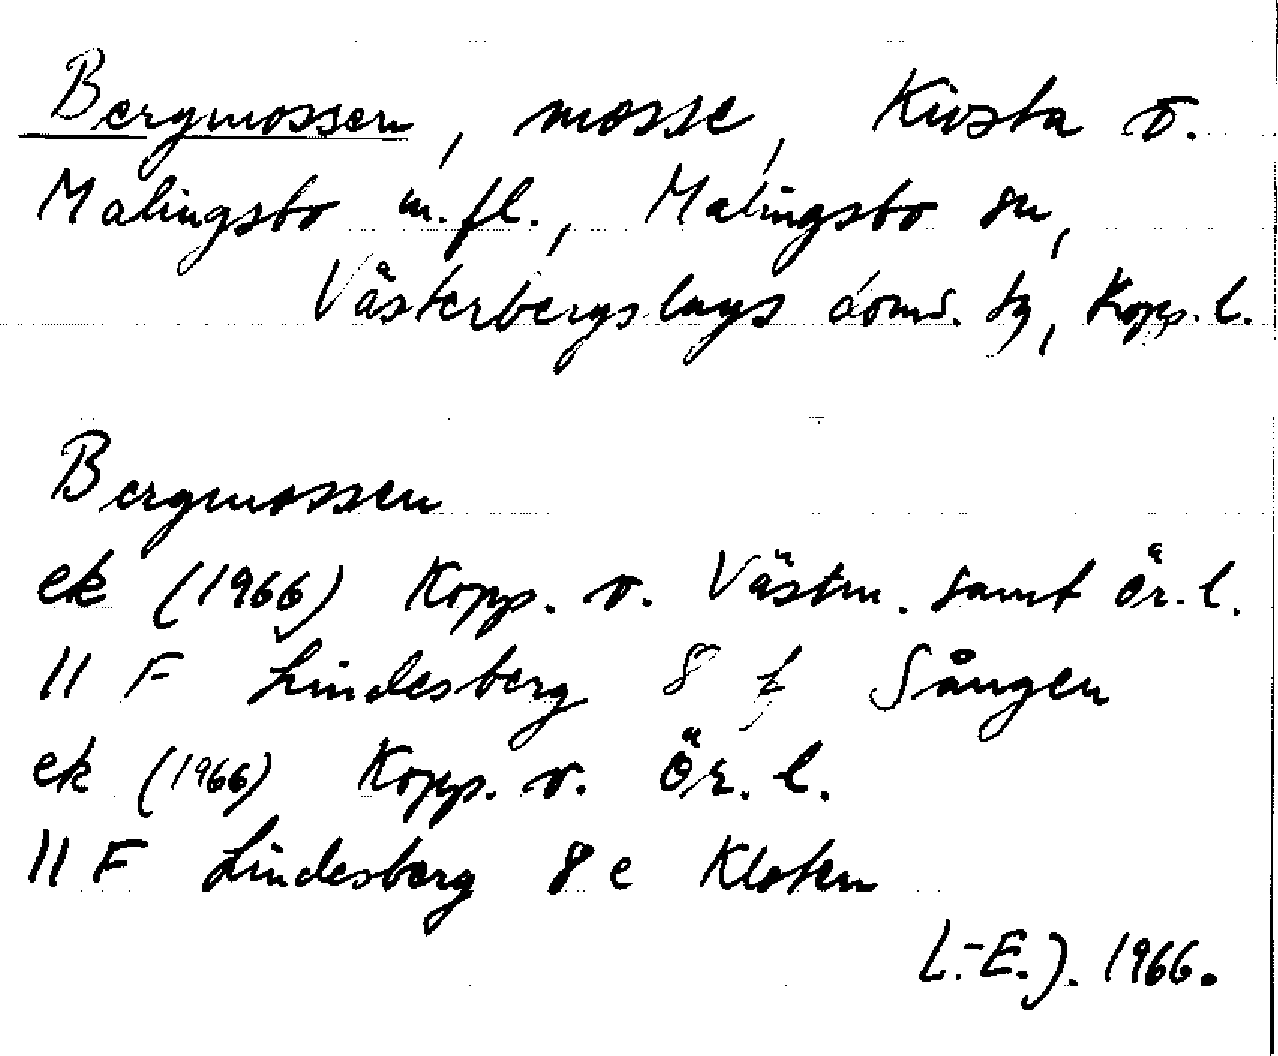 Bergmossen, mosse, Kusta o.
Malingsbo m.fl., Malingsbo sn,
Västerbergslags doms. tg, Kopp. l.
Bergmossen
ek (1966) Kopp. o. Västm. samt Ör. l.
11 F Lindesberg 8 f Sången
ek (1966) Kopp. o. Ör. l.
11 F Lindesberg 8 e Kloten
L.-E.J. 1966.